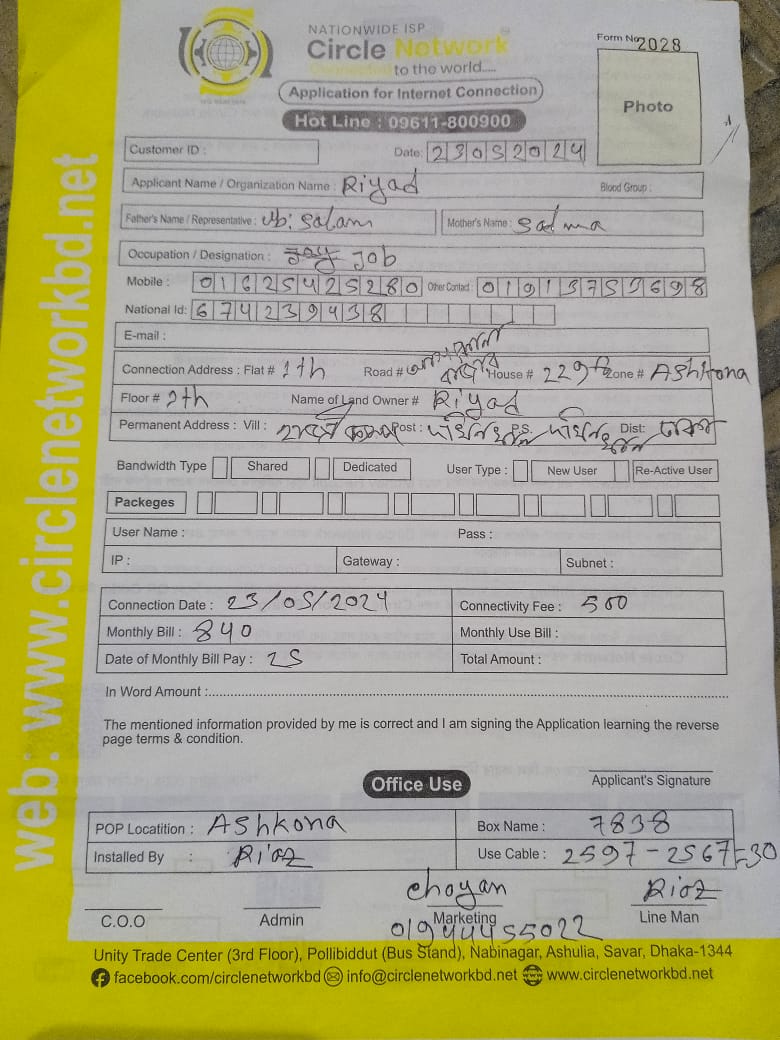 NATIONWIDE ISP
Circle Network
Connected to the world....
Form No. 2028
Application for Internet Connection
Photo
Hot Line : 09611-800900
Customer ID :
Date: 23052024
Applicant Name / Organization Name : Riyad Blood Group :
Father's Name / Representative : Ab: Salam Mother's Name : Salma
Occupation / Designation : Job
Mobile : 01625425280 Other Contact : 01913759698
National Id: 674239438
E-mail :
Connection Address : Flat # 1th Road # House # 229 Zone # Ashkona
Floor # 2th Name of Land Owner # Riyad
Permanent Address : Vill : Post : P.S. Dist: ঢাকা
Bandwidth Type Shared Dedicated User Type : New User Re-Active User
Packeges
User Name : Pass :
IP : Gateway : Subnet :
Connection Date : 23/05/2024 Connectivity Fee : 500
Monthly Bill : 840 Monthly Use Bill :
Date of Monthly Bill Pay : 25 Total Amount :
In Word Amount :
The mentioned information provided by me is correct and I am signing the Application learning the reverse
page terms & condition.
Applicant's Signature
Office Use
POP Locatition : Ashkona Box Name : 7838
Installed By : Riaz Use Cable : 2597-2567=30
choyan Riaz
C.O.O Admin Marketing Line Man
01944455022
Unity Trade Center (3rd Floor), Pollibiddut (Bus Stand), Nabinagar, Ashulia, Savar, Dhaka-1344
facebook.com/circlenetworkbd info@circlenetworkbd.net www.circlenetworkbd.net
web: www.circlenetworkbd.net